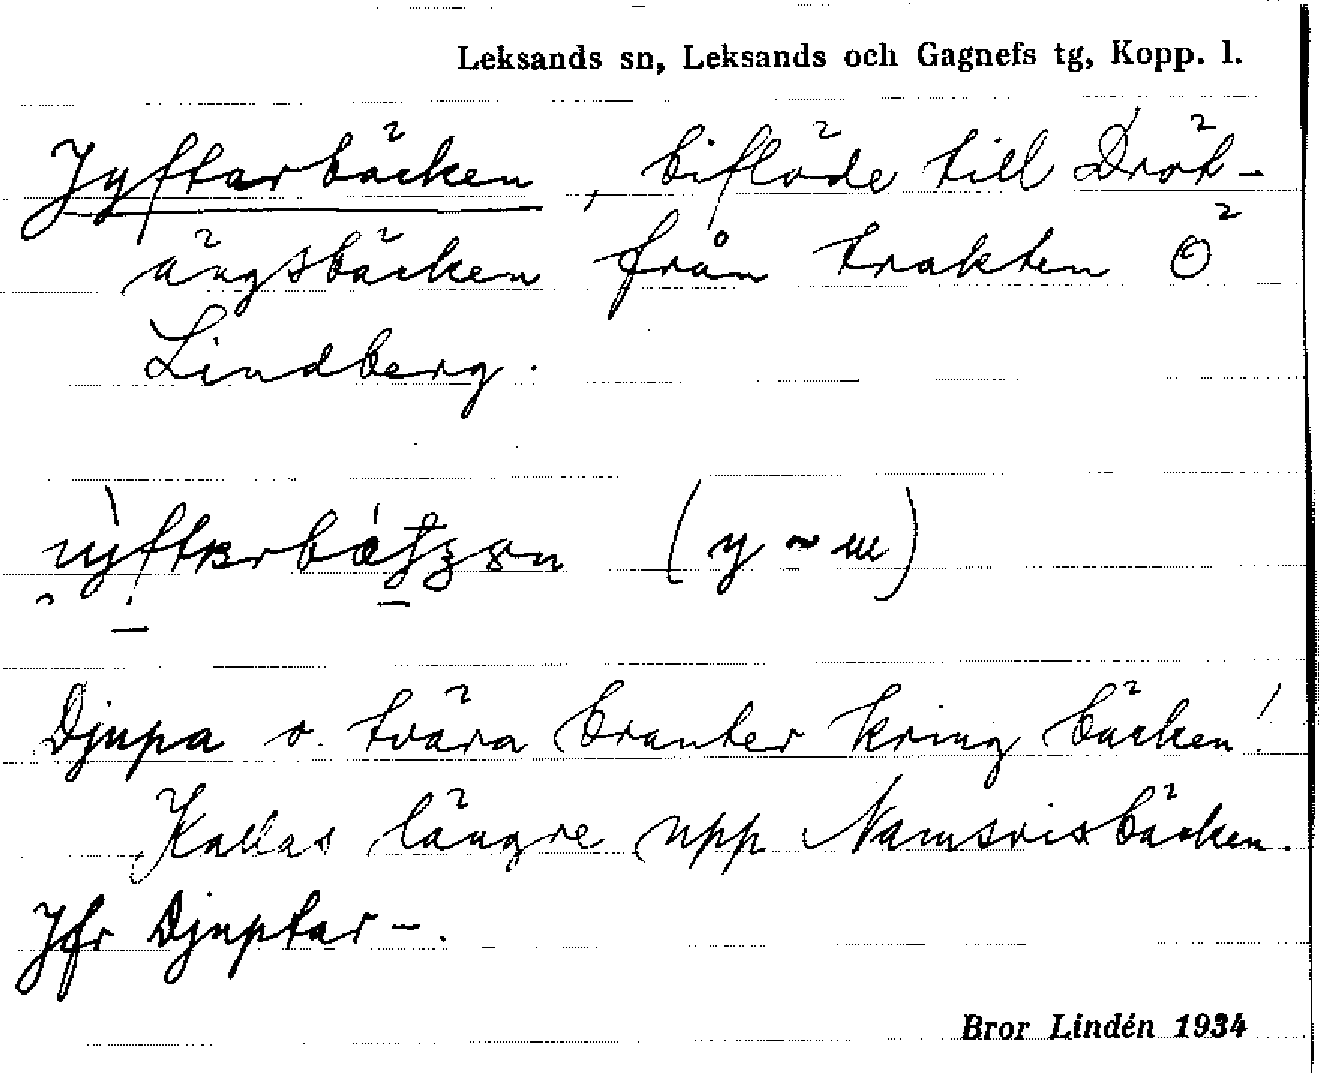 Leksands sn, Leksands och Gagnefs tg, Kopp. l.
Jyftarbäcken, biflöde till Dröt-
ängsbäcken från trakten Ö
Lindberg.
(y ~ ɯ)
Djupa o. tvära branter kring bäcken!
Kallas längre upp Namsrisbäcken.
Jfr Djuptar-.
Bror Lindén 1934